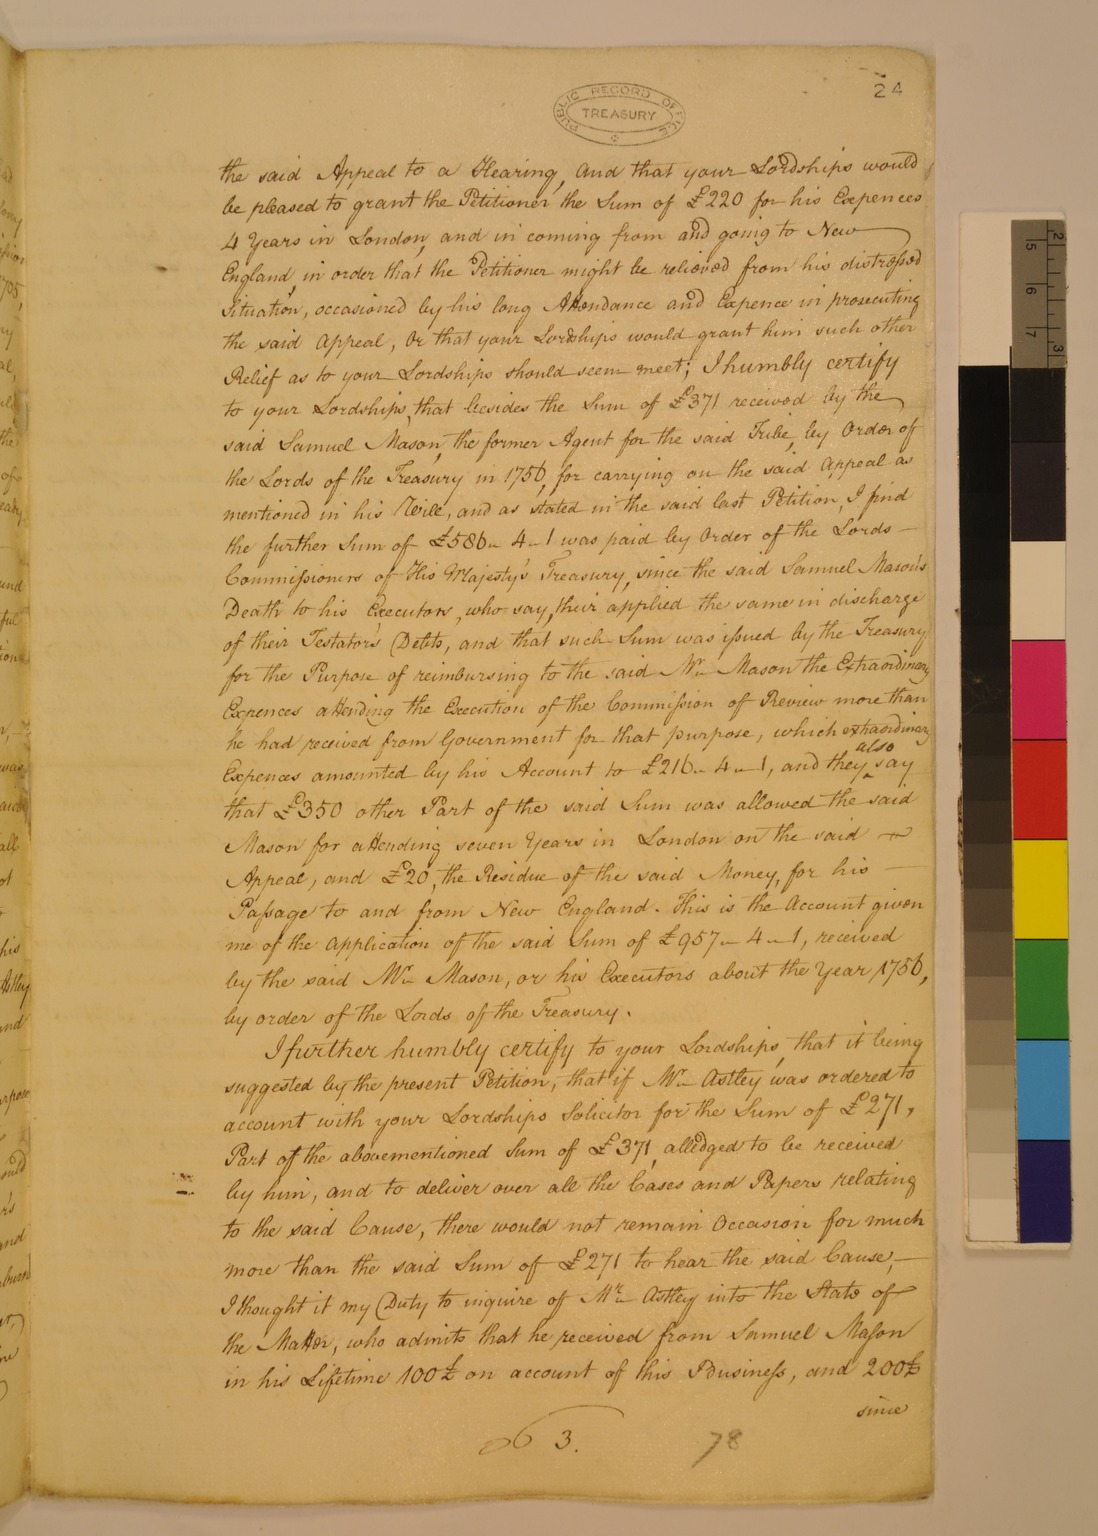 24
PUBLIC RECORD OFFICE
TREASURY
the said Appeal to a Hearing, and that your Lordships would
be pleased to grant the Petitioner the Sum of £220 for his Expences
4 Years in London, and in coming from and going to New
England, in order that the Petitioner might be relieved from his distressed
Situation, occasioned by his long Attendance and Expence in prosecuting
the said Appeal, Or that your Lordships would grant him such other
Relief as to your Lordships should seem meet; I humbly certify
to your Lordships, that besides the Sum of £371 received by the
said Samuel Mason, the former Agent for the said Tribe, by Order of
the Lords of the Treasury in 1756, for carrying on the said Appeal as
mentioned in his Will, and as stated in the said last Petition, I find
the further Sum of £586 - 4 - 1 was paid by Order of the Lords
Commissioners of His Majesty's Treasury, since the said Samuel Mason's
Death to his Executors, who say, their applied the same in discharge
of their Testator's Debts, and that such Sum was issued by the Treasury
for the Purpose of reimbursing to the said Mr. Mason the Extraordinary
Expences attending the Execution of the Commission of Review more than
he had received from Government for that purpose, which extraordinary
Expences amounted by his Account to £216 - 4 - 1, and they also say
that £350 other Part of the said Sum was allowed the said
Mason for attending seven Years in London on the said
Appeal, and £20, the Residue of the said Money, for his
Passage to and from New England. This is the Account given
me of the Application of the said Sum of £957 - 4 - 1, received
by the said Mr. Mason, or his Executors about the Year 1756,
by order of the Lords of the Treasury.
I further humbly certify to your Lordships, that it being
suggested by the present Petition, that if Mr. Astley was ordered to
account with your Lordships Solicitor for the Sum of £271,
Part of the abovementioned Sum of £371, alledged to be received
by him, and to deliver over all the Cases and Papers relating
to the said Cause, there would not remain Occasion for much
more than the said Sum of £271 to hear the said Cause,
I thought it my Duty to inquire of Mr. Astley into the State of
the Matter, who admits that he received from Samuel Mason
in his Lifetime 100£ on account of this Business, and 200£
since
3.
78